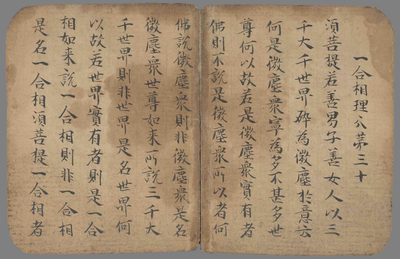 一合相理分苐三十
湏菩提若善男子善女人以三
千大千世界碎為微塵於意云
何是微塵衆寧為多不甚多世
尊何以故若是微塵衆實有者
佛則不說是微塵衆所以者何
佛說微塵衆則非微塵衆是名
微塵衆世尊如来所說三千大
千世界則非世界是名世界何
以故若世界實有者則是一合
相如来說一合相則非一合相
是名一合相湏菩提一合相者